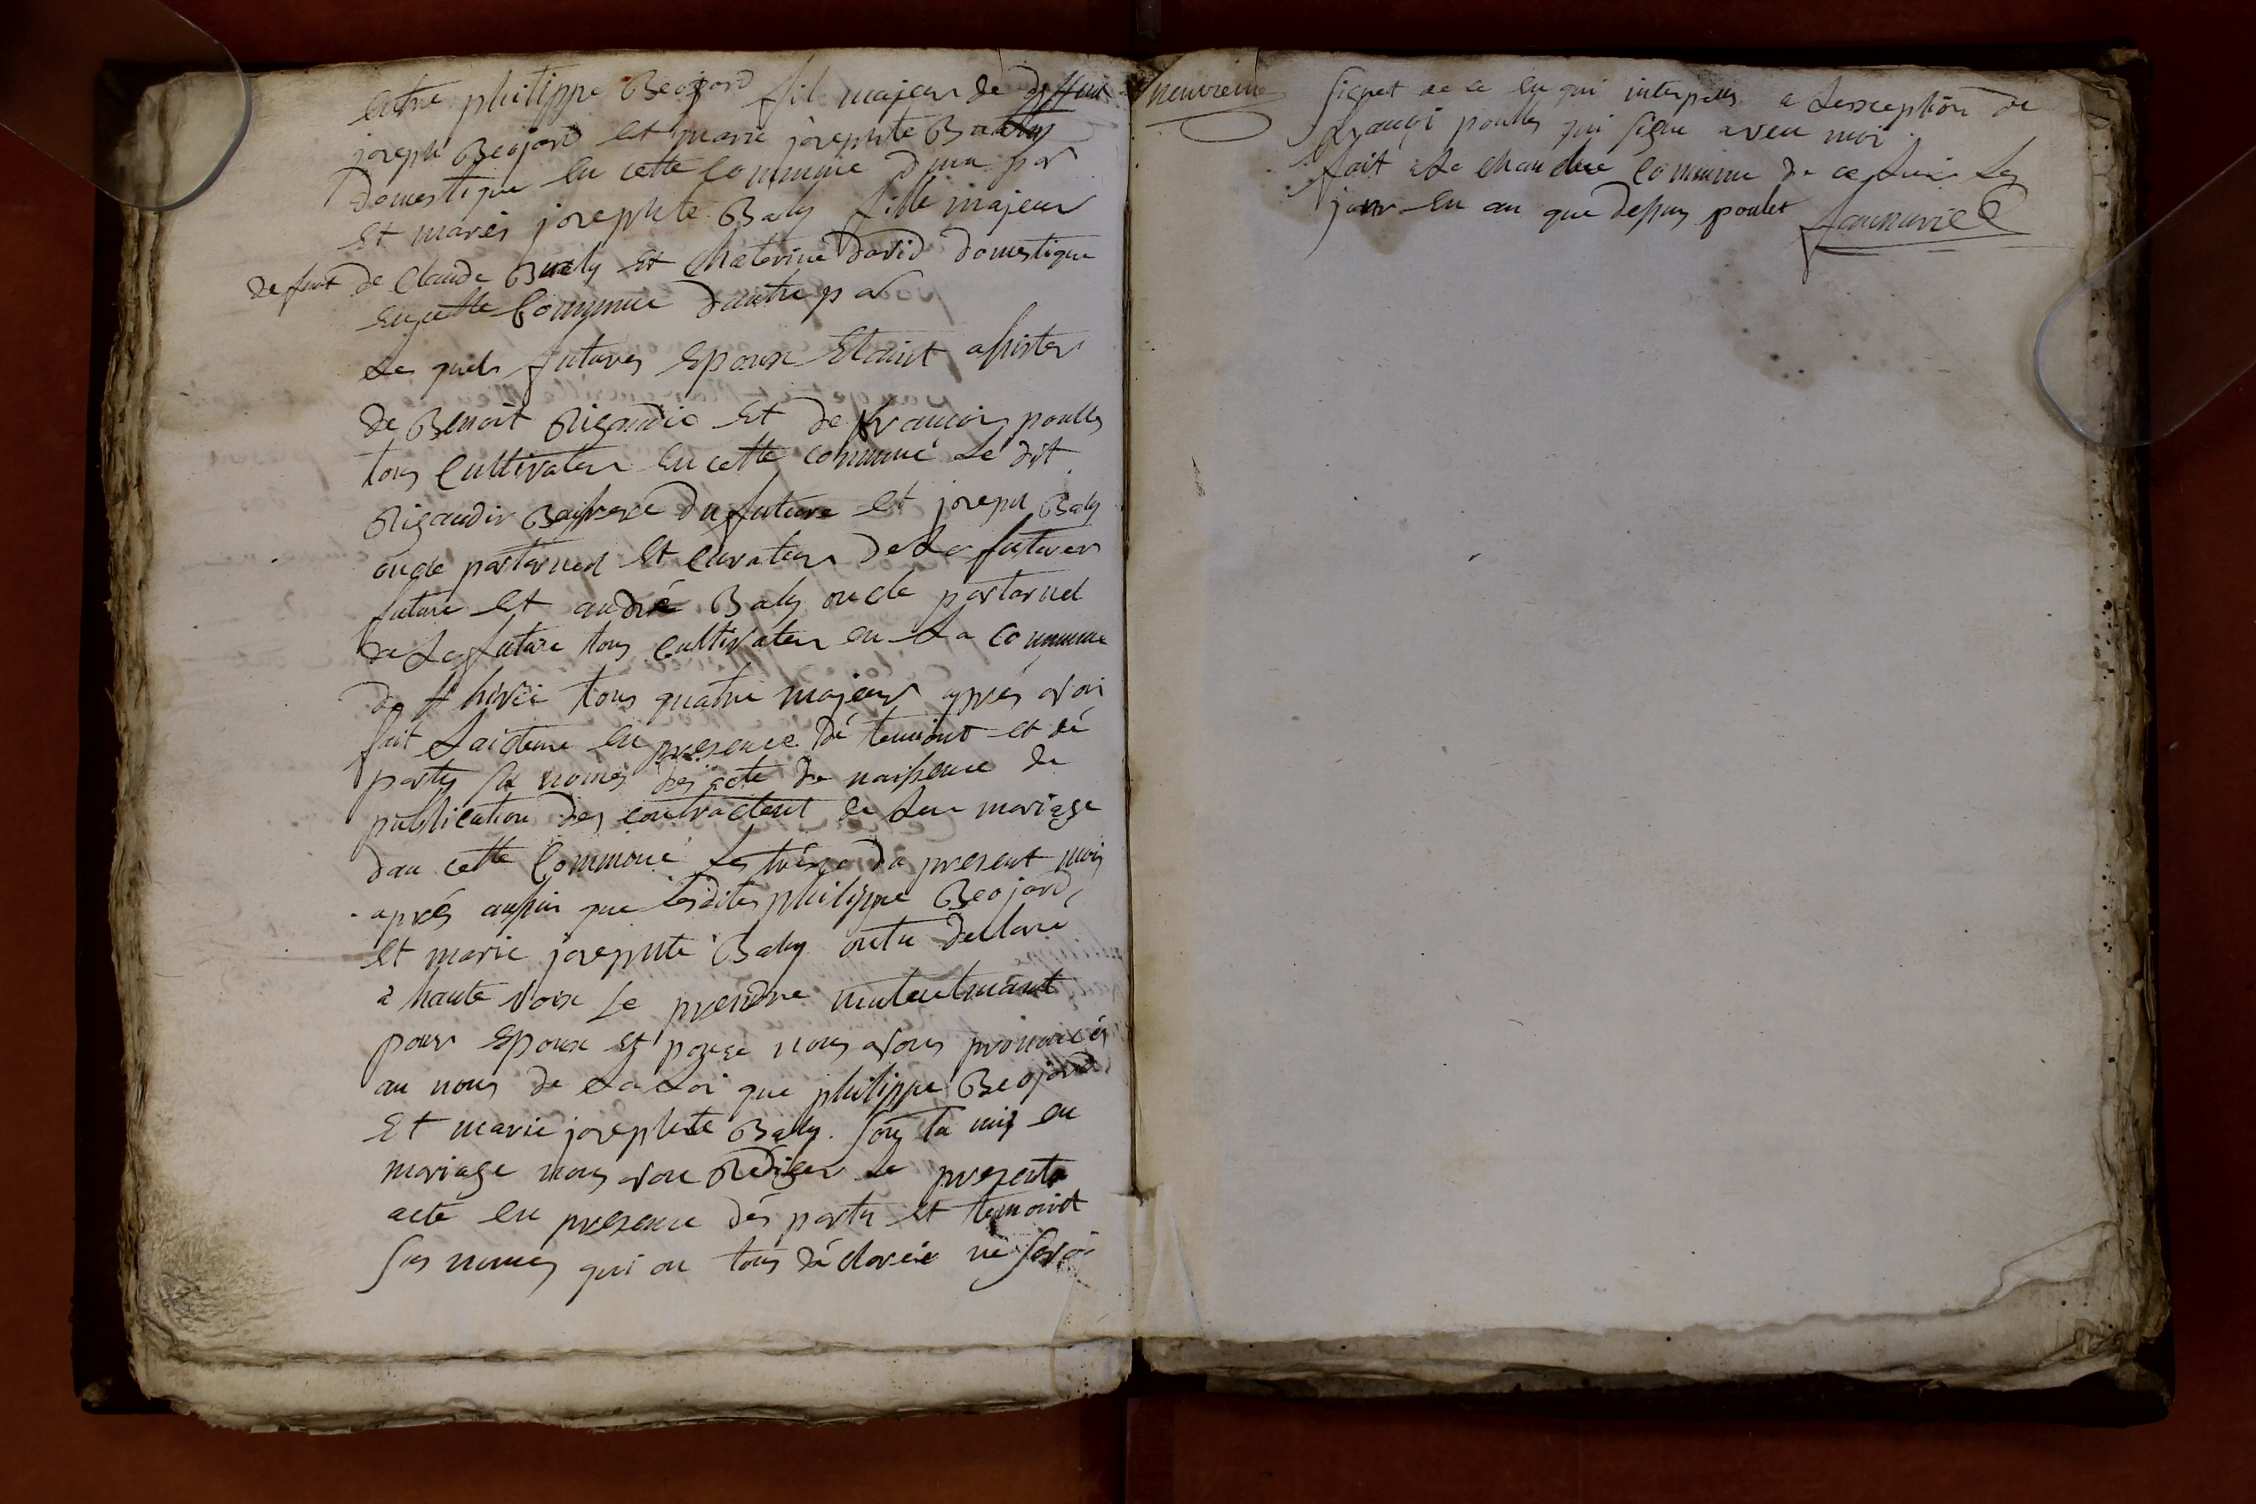 Entre philippe Beojard fil majeur de deffent
joseph Beojard et marie josephte Baly
Domestique en cette commune d'une par
et mariés josephte Baly fille majeur
defunt de Claude Baly et Chaterine David domestique
en cette Commune d'autre par
Les quels futures Epoux Etaint assister
de Benoit Rigaudie et de francois poulle
tous Cultivateur en cette commune Le dit
Rigaudir Baufrere du future et joseph Baly
oncle parternel et curateur de La future
future et andré Baly oncle parternel
de La future tous cultivateur en La commune
de tous quatre majeur apprés avoir
fait Laicteure en presence dé temoint et dé
partis su només des acte de naissence de
publication des contractent de Leur mariage
dan cette Commune Le treize du present mois
aprés aussin que Lesdites philippe Beojard
et marie josephte Baly ontu declaré
a haute voix Le prendre mutuelmant
pour Epoux et pouse nous avons prononcés
au nom de La Loi que philippe Beojard
Et marie josephte Baly son tu nis en
mariage nous avon Rédiger Le presente
acte en presence dés partis et temoint
sus només qui on tous dé clarée ne savoi
signer de ce en qui interpellés a Lexception de
francoi poulle qui signe aveu moi
fait a La chau commune de ce Lieu Les
jour en an que dessus poulet